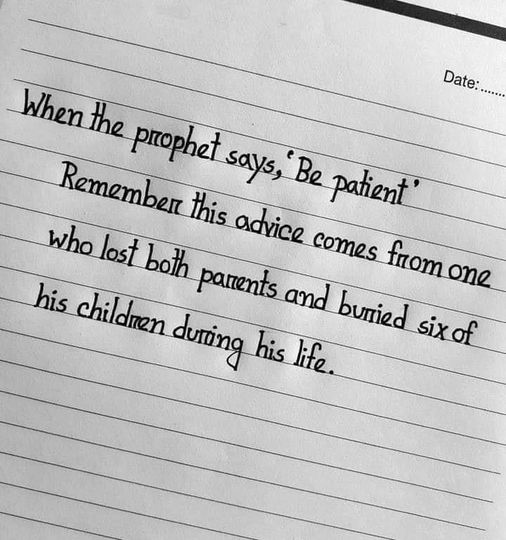 Date:.......
When the prophet says, 'Be patient'
Remember this advice comes from one
who lost both parents and buried six of
his children during his life.